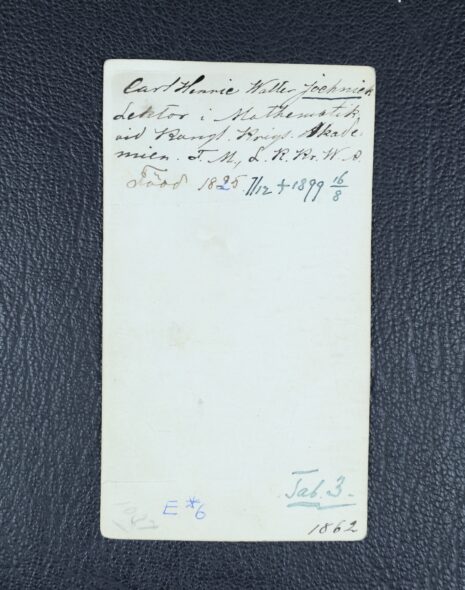 Carl Henric Walter Jochnick
Lektor i Mathematik
vid Kongl. Krigs Akade-
mien. F. M, L. K. Kr. W. A.
Född 1825 7/12 + 1899 16/8
Tab. 3.
E #6
1862